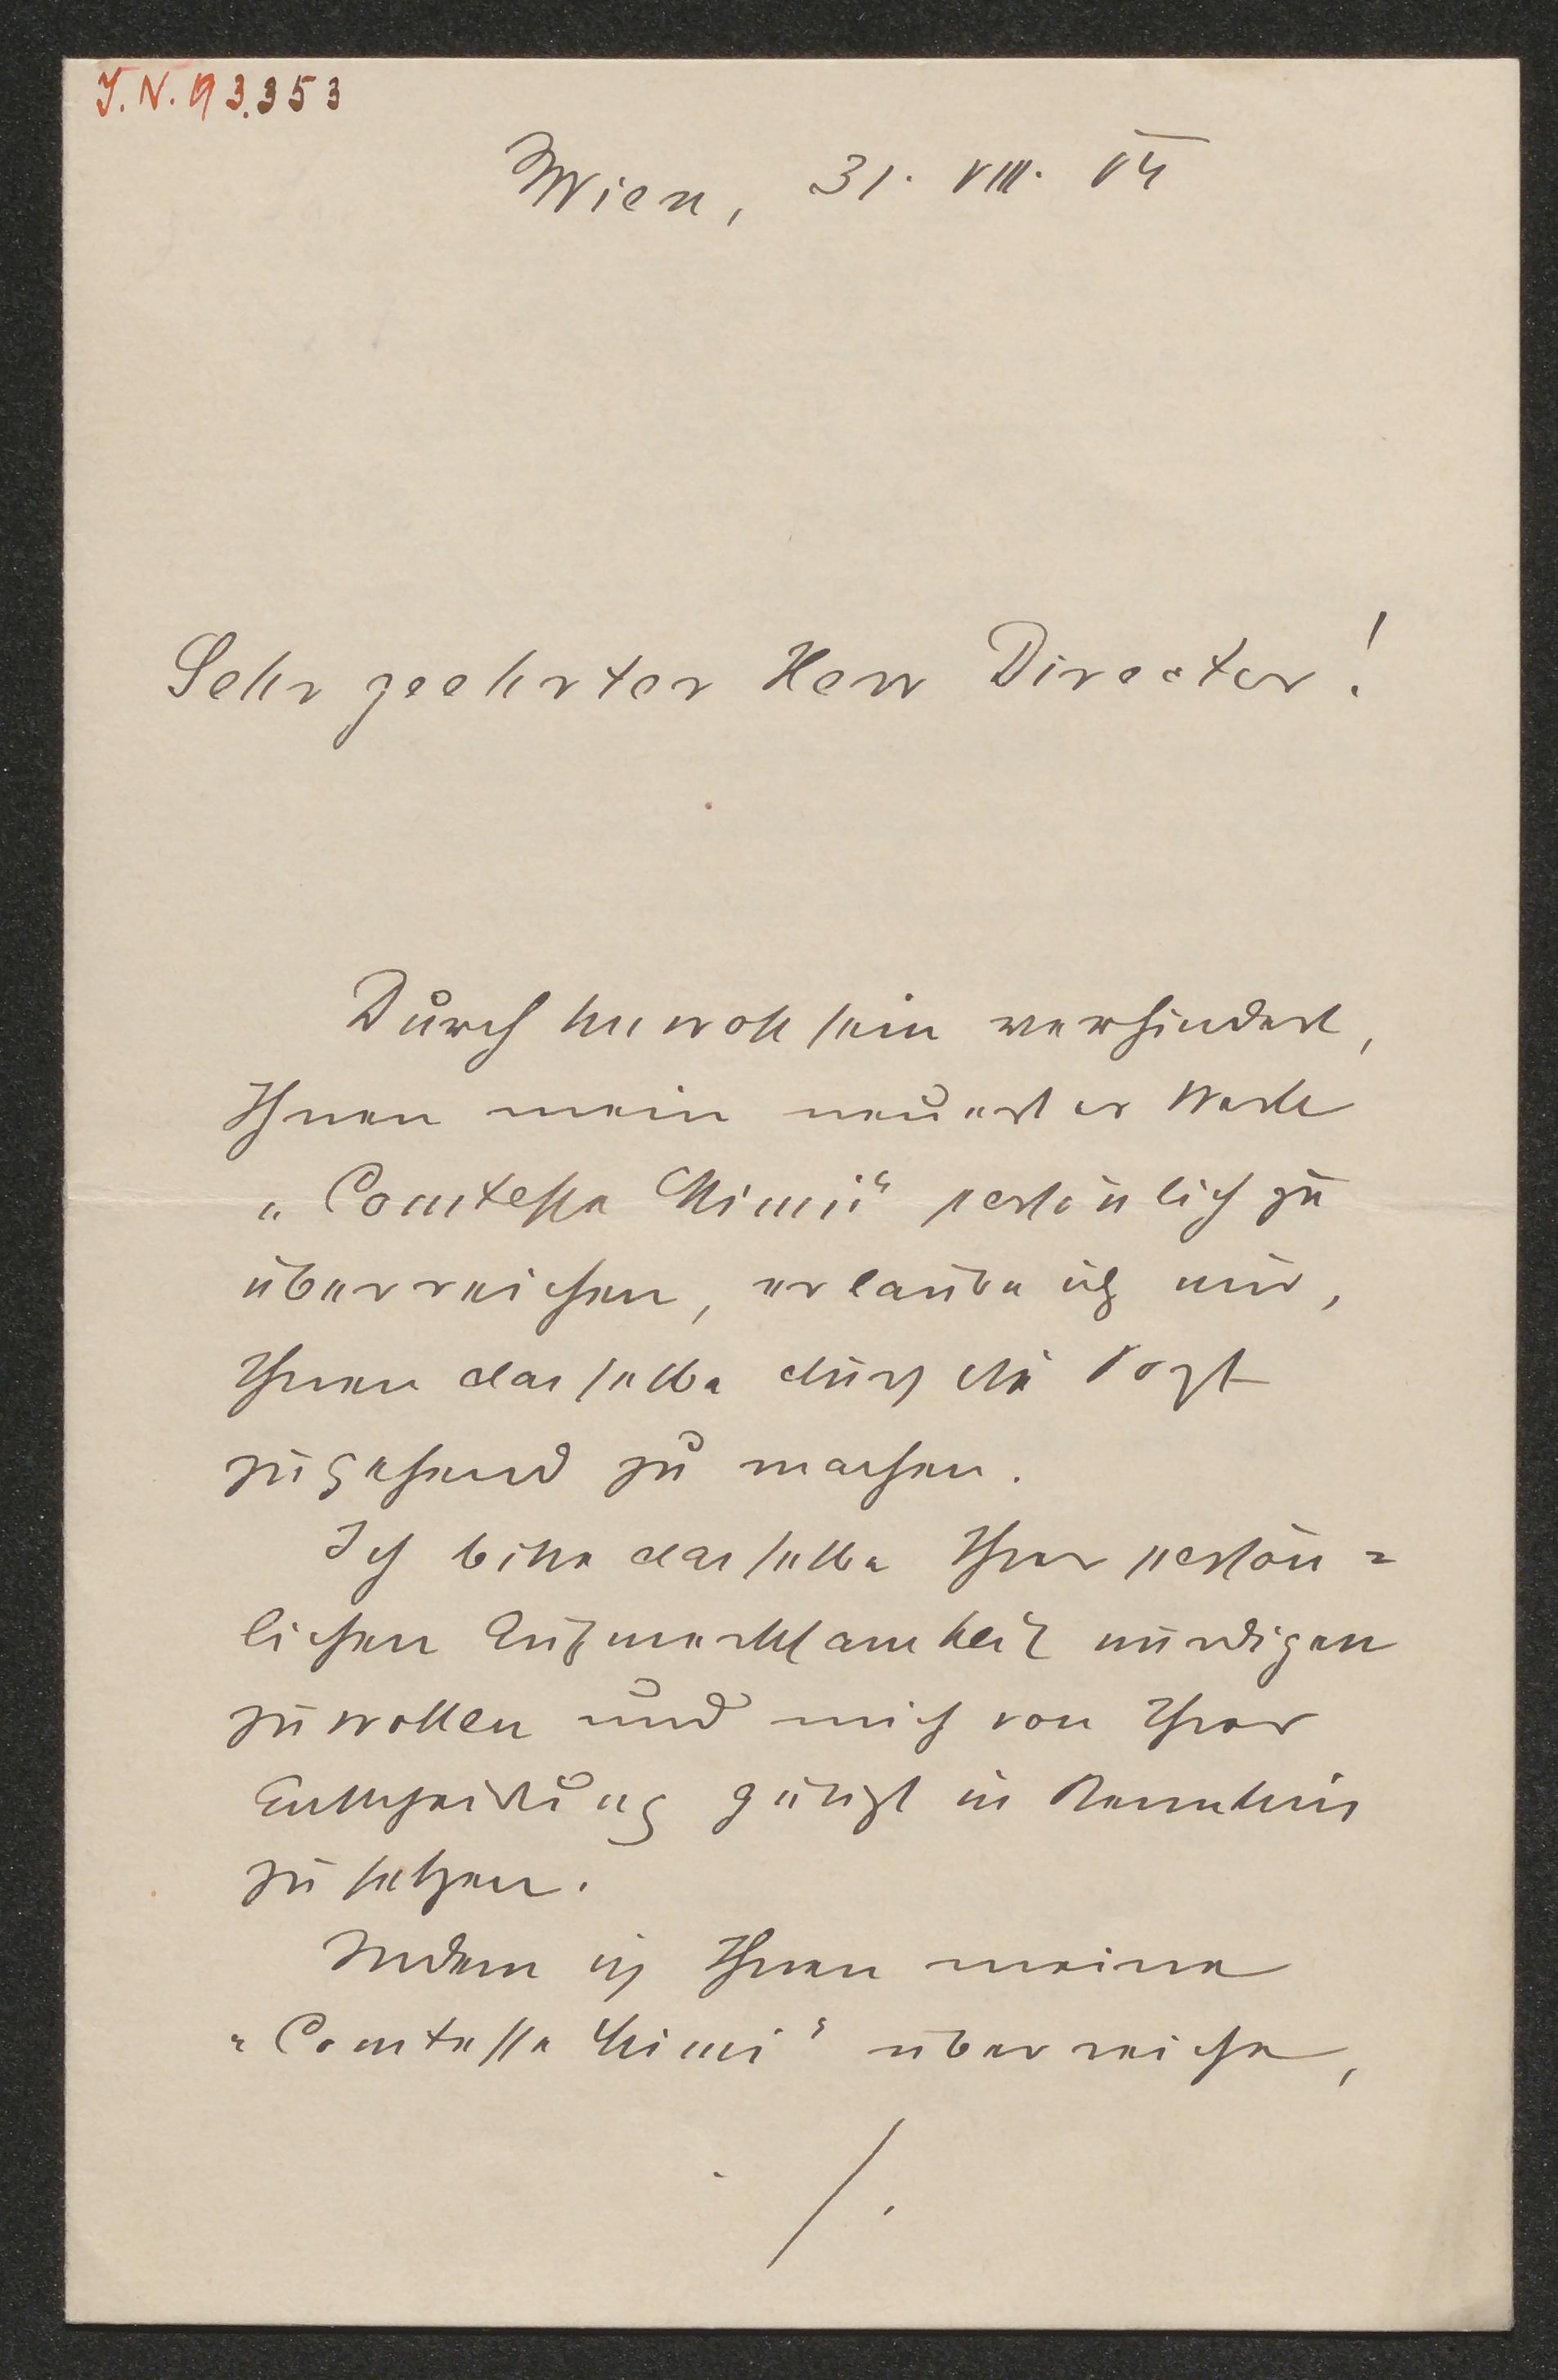 J. N. 93.353
Wien, 31. VIII. 04
Sehr geehrter Herr Director!
Durch Unwohlsein verhindert,
Ihnen mein neuestes Werk
„Comtesse Mimi“ persönlich zu
überreichen, erlaube ich mir,
Ihnen dasselbe durch die Post
zugehend zu machen.
Ich bitte dasselbe Ihrer persön=
lichen Aufmerksamkeit würdigen
zu wollen und mich von Ihrer
Entscheidung gütigst in Kenntnis
zu setzen.
Indem ich Ihnen meine
„Comtesse Mimi“ überreiche,
/.